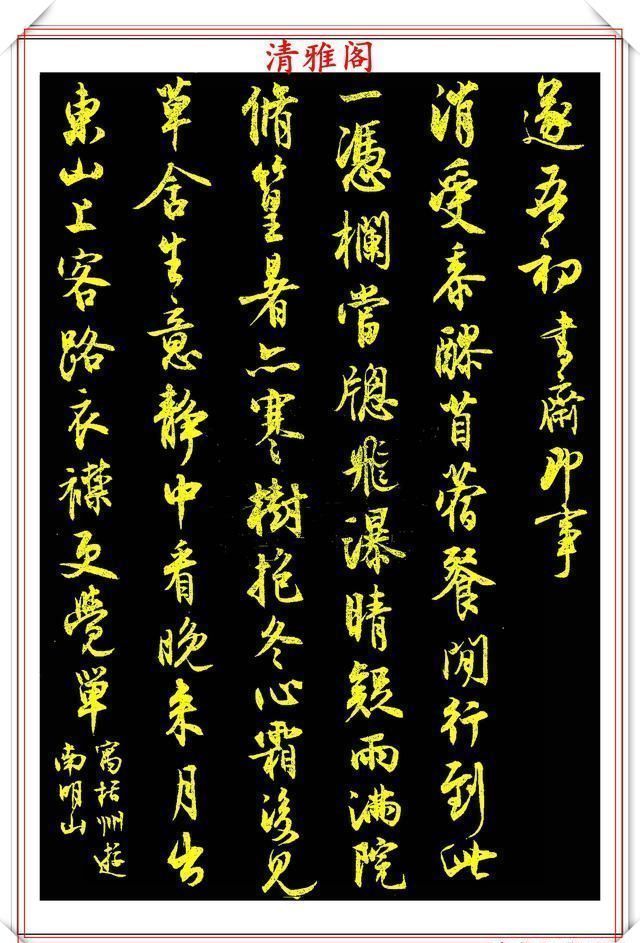 清雅阁
遂吾初 書齋即事
消受黍醪苜蓿餐閒行到此
一憑欄當牕飛瀑晴疑雨滿院
脩篁暑亦寒樹抱冬心霜後見
草含生意靜中看晚来月出
東山上客路衣襟更覺單
寓括州遊
南明山